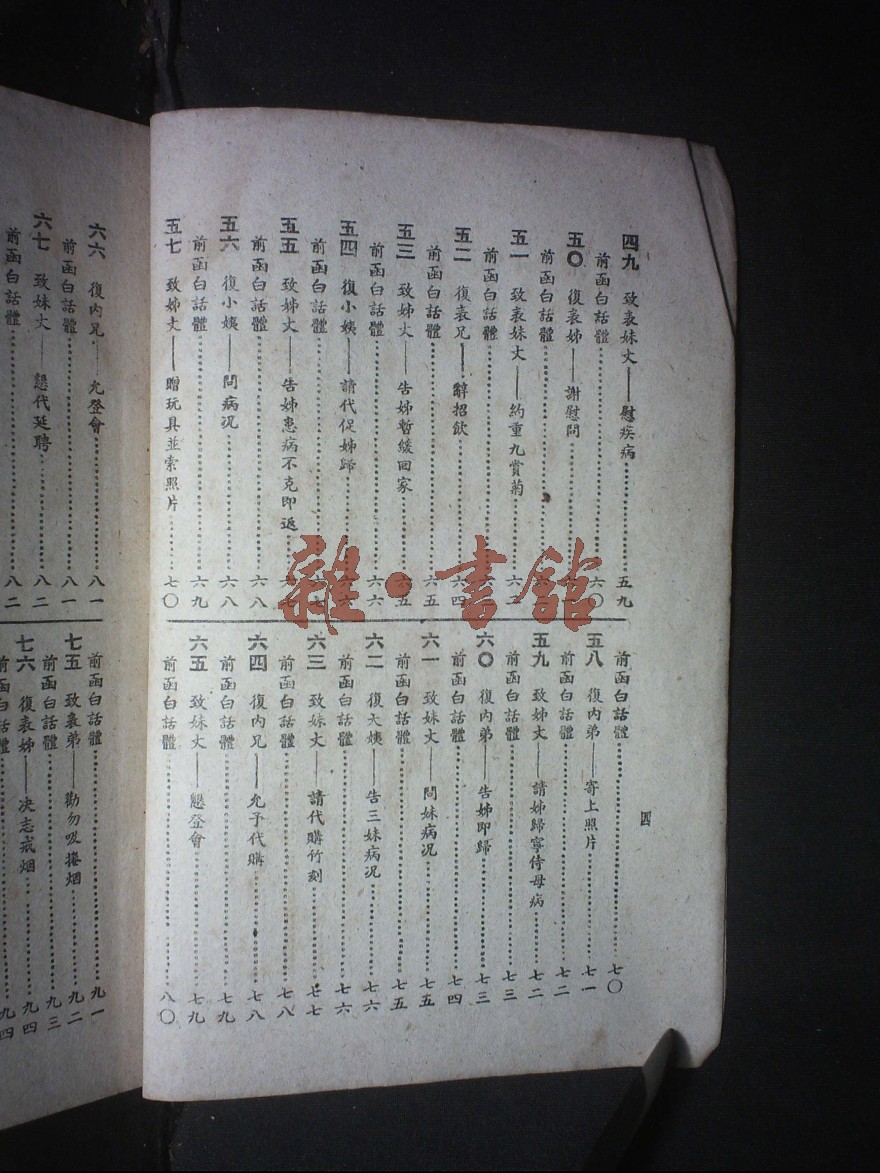 四九　致表妹丈——慰疾病……五九
前函白話體……六〇
五〇　復表姊——謝慰問……
前函白話體……
五一　致表妹丈——約重九賞菊……六二
前函白話體……
五二　復表兄——辭招飲……六四
前函白話體……六五
五三　致姊丈——告姊暫緩回家……六五
前函白話體……六六
五四　復小姨——請代促姊歸……
前函白話體……
五五　致姊丈——告姊患病不克即返……
前函白話體……六八
五六　復小姨——問病况……六八
前函白話體……六九
五七　致姊丈——贈玩具並索照片……七〇
前函白話體……七〇
五八　復內弟——寄上照片……七一
前函白話體……七二
五九　致姊丈——請姊歸寧侍母病……七二
前函白話體……七三
六〇　復內弟——告姊即歸……七三
前函白話體……七四
六一　致妹丈——問妹病况……七五
前函白話體……七五
六二　復大姨——告三妹病况……七六
前函白話體……七六
六三　致妹丈——請代購竹刻……七七
前函白話體……七八
六四　復內兄——允予代購……七八
前函白話體……七九
六五　致妹丈——懇登會……七九
前函白話體……八〇
四
六六　復內兄——允登會……八一
前函白話體……八一
六七　致妹丈——懇代延聘……八二
前函白話體……八二
前函白話體……九一
七五　致表弟——勸勿吸捲烟……九二
前函白話體……九三
七六　復表姊——决志戒烟……九四
前函白話體……九四
雜·書館